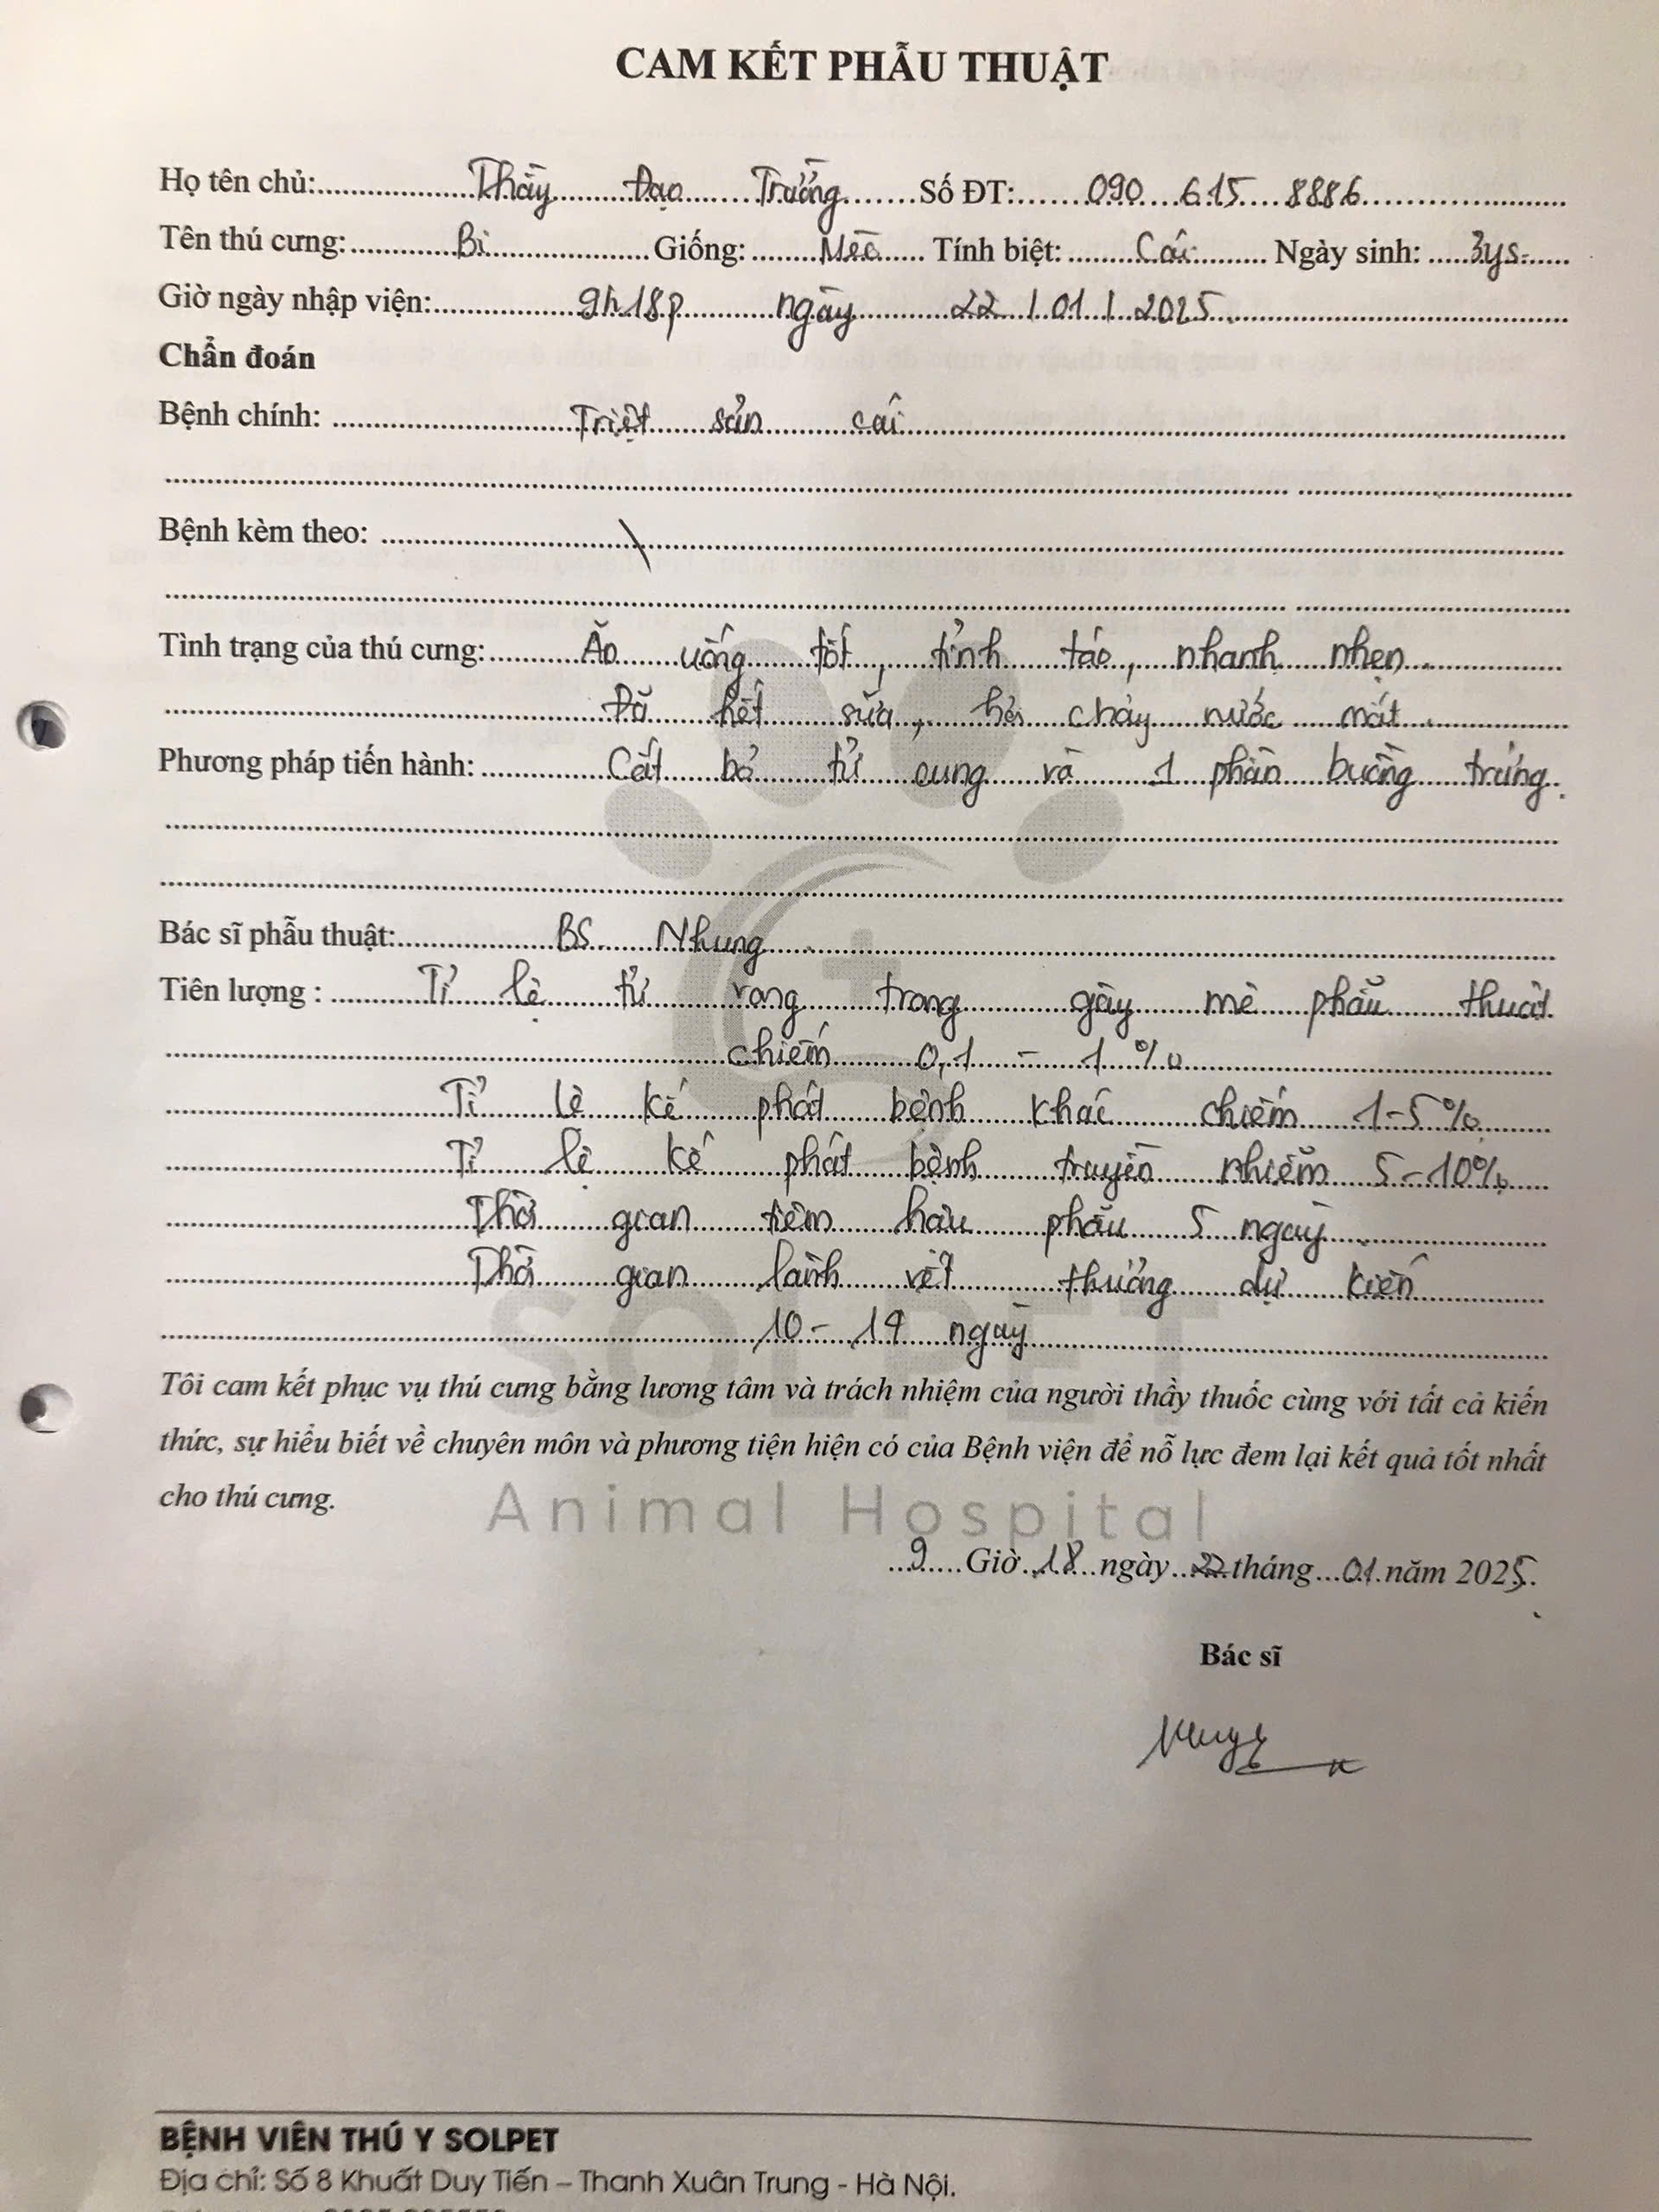 CAM KẾT PHẪU THUẬT
Họ tên chủ: Thầy Đạo Trưởng Số ĐT: 090 615 8886
Tên thú cưng: Bi Giống: Mèo Tính biệt: Cái Ngày sinh: 3ys
Giờ ngày nhập viện: 9h18p ngày 22/01/2025
Chẩn đoán
Bệnh chính: Triệt sản cái
Bệnh kèm theo: \
Tình trạng của thú cưng: Ăn uống tốt, tỉnh táo, nhanh nhẹn
Đã hết sữa, hơi chảy nước mắt
Phương pháp tiến hành: Cắt bỏ tử cung và 1 phần buồng trứng.
Bác sĩ phẫu thuật: BS Nhung
Tiên lượng : Tỉ lệ tử vong trong gây mê phẫu thuật
chiếm 0,1 - 1 %
Tỉ lệ kế phát bệnh khác chiếm 1-5%
Tỉ lệ kế phát bệnh truyền nhiễm 5-10%
Thời gian tiêm hậu phẫu 5 ngày
Thời gian lành vết thương dự kiến
10 - 14 ngày
SOLPET
Tôi cam kết phục vụ thú cưng bằng lương tâm và trách nhiệm của người thầy thuốc cùng với tất cả kiến
thức, sự hiểu biết về chuyên môn và phương tiện hiện có của Bệnh viện để nỗ lực đem lại kết quả tốt nhất
cho thú cưng.
Animal Hospital
9 Giờ 18 ngày 22 tháng 01 năm 2025.
Bác sĩ
BỆNH VIÊN THÚ Y SOLPET
Địa chỉ: Số 8 Khuất Duy Tiến – Thanh Xuân Trung - Hà Nội.